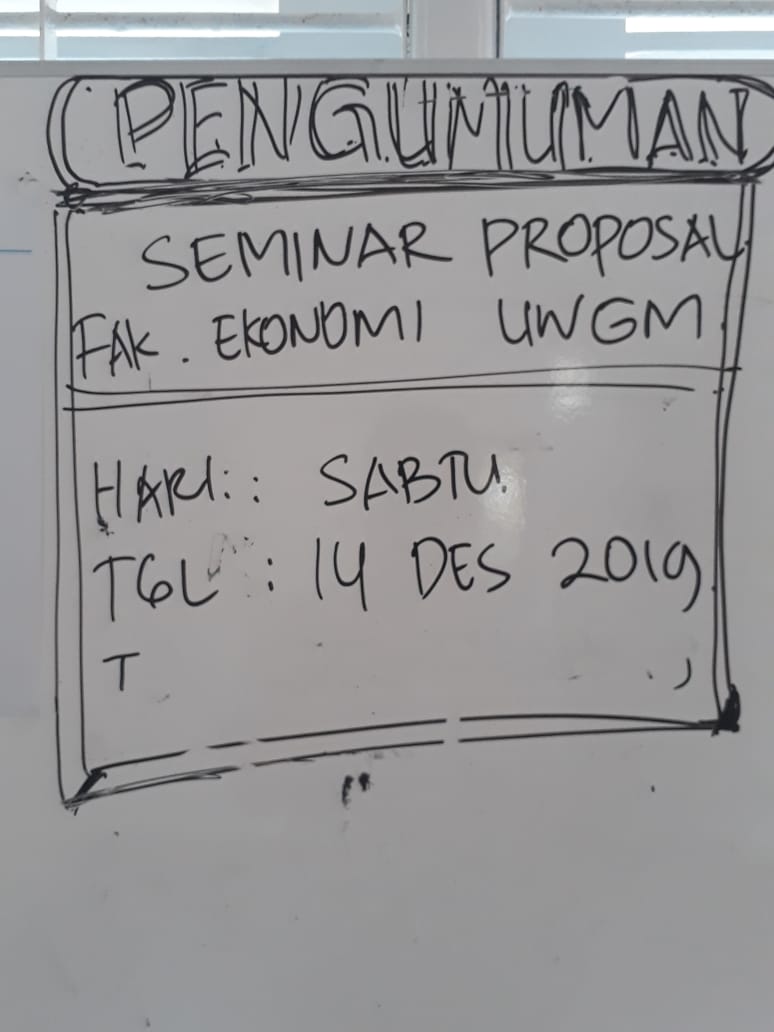 PENGUMUMAN
SEMINAR PROPOSAL
FAK. EKONOMI UWGM
HARI : SABTU
TGL : 14 DES 2019
T